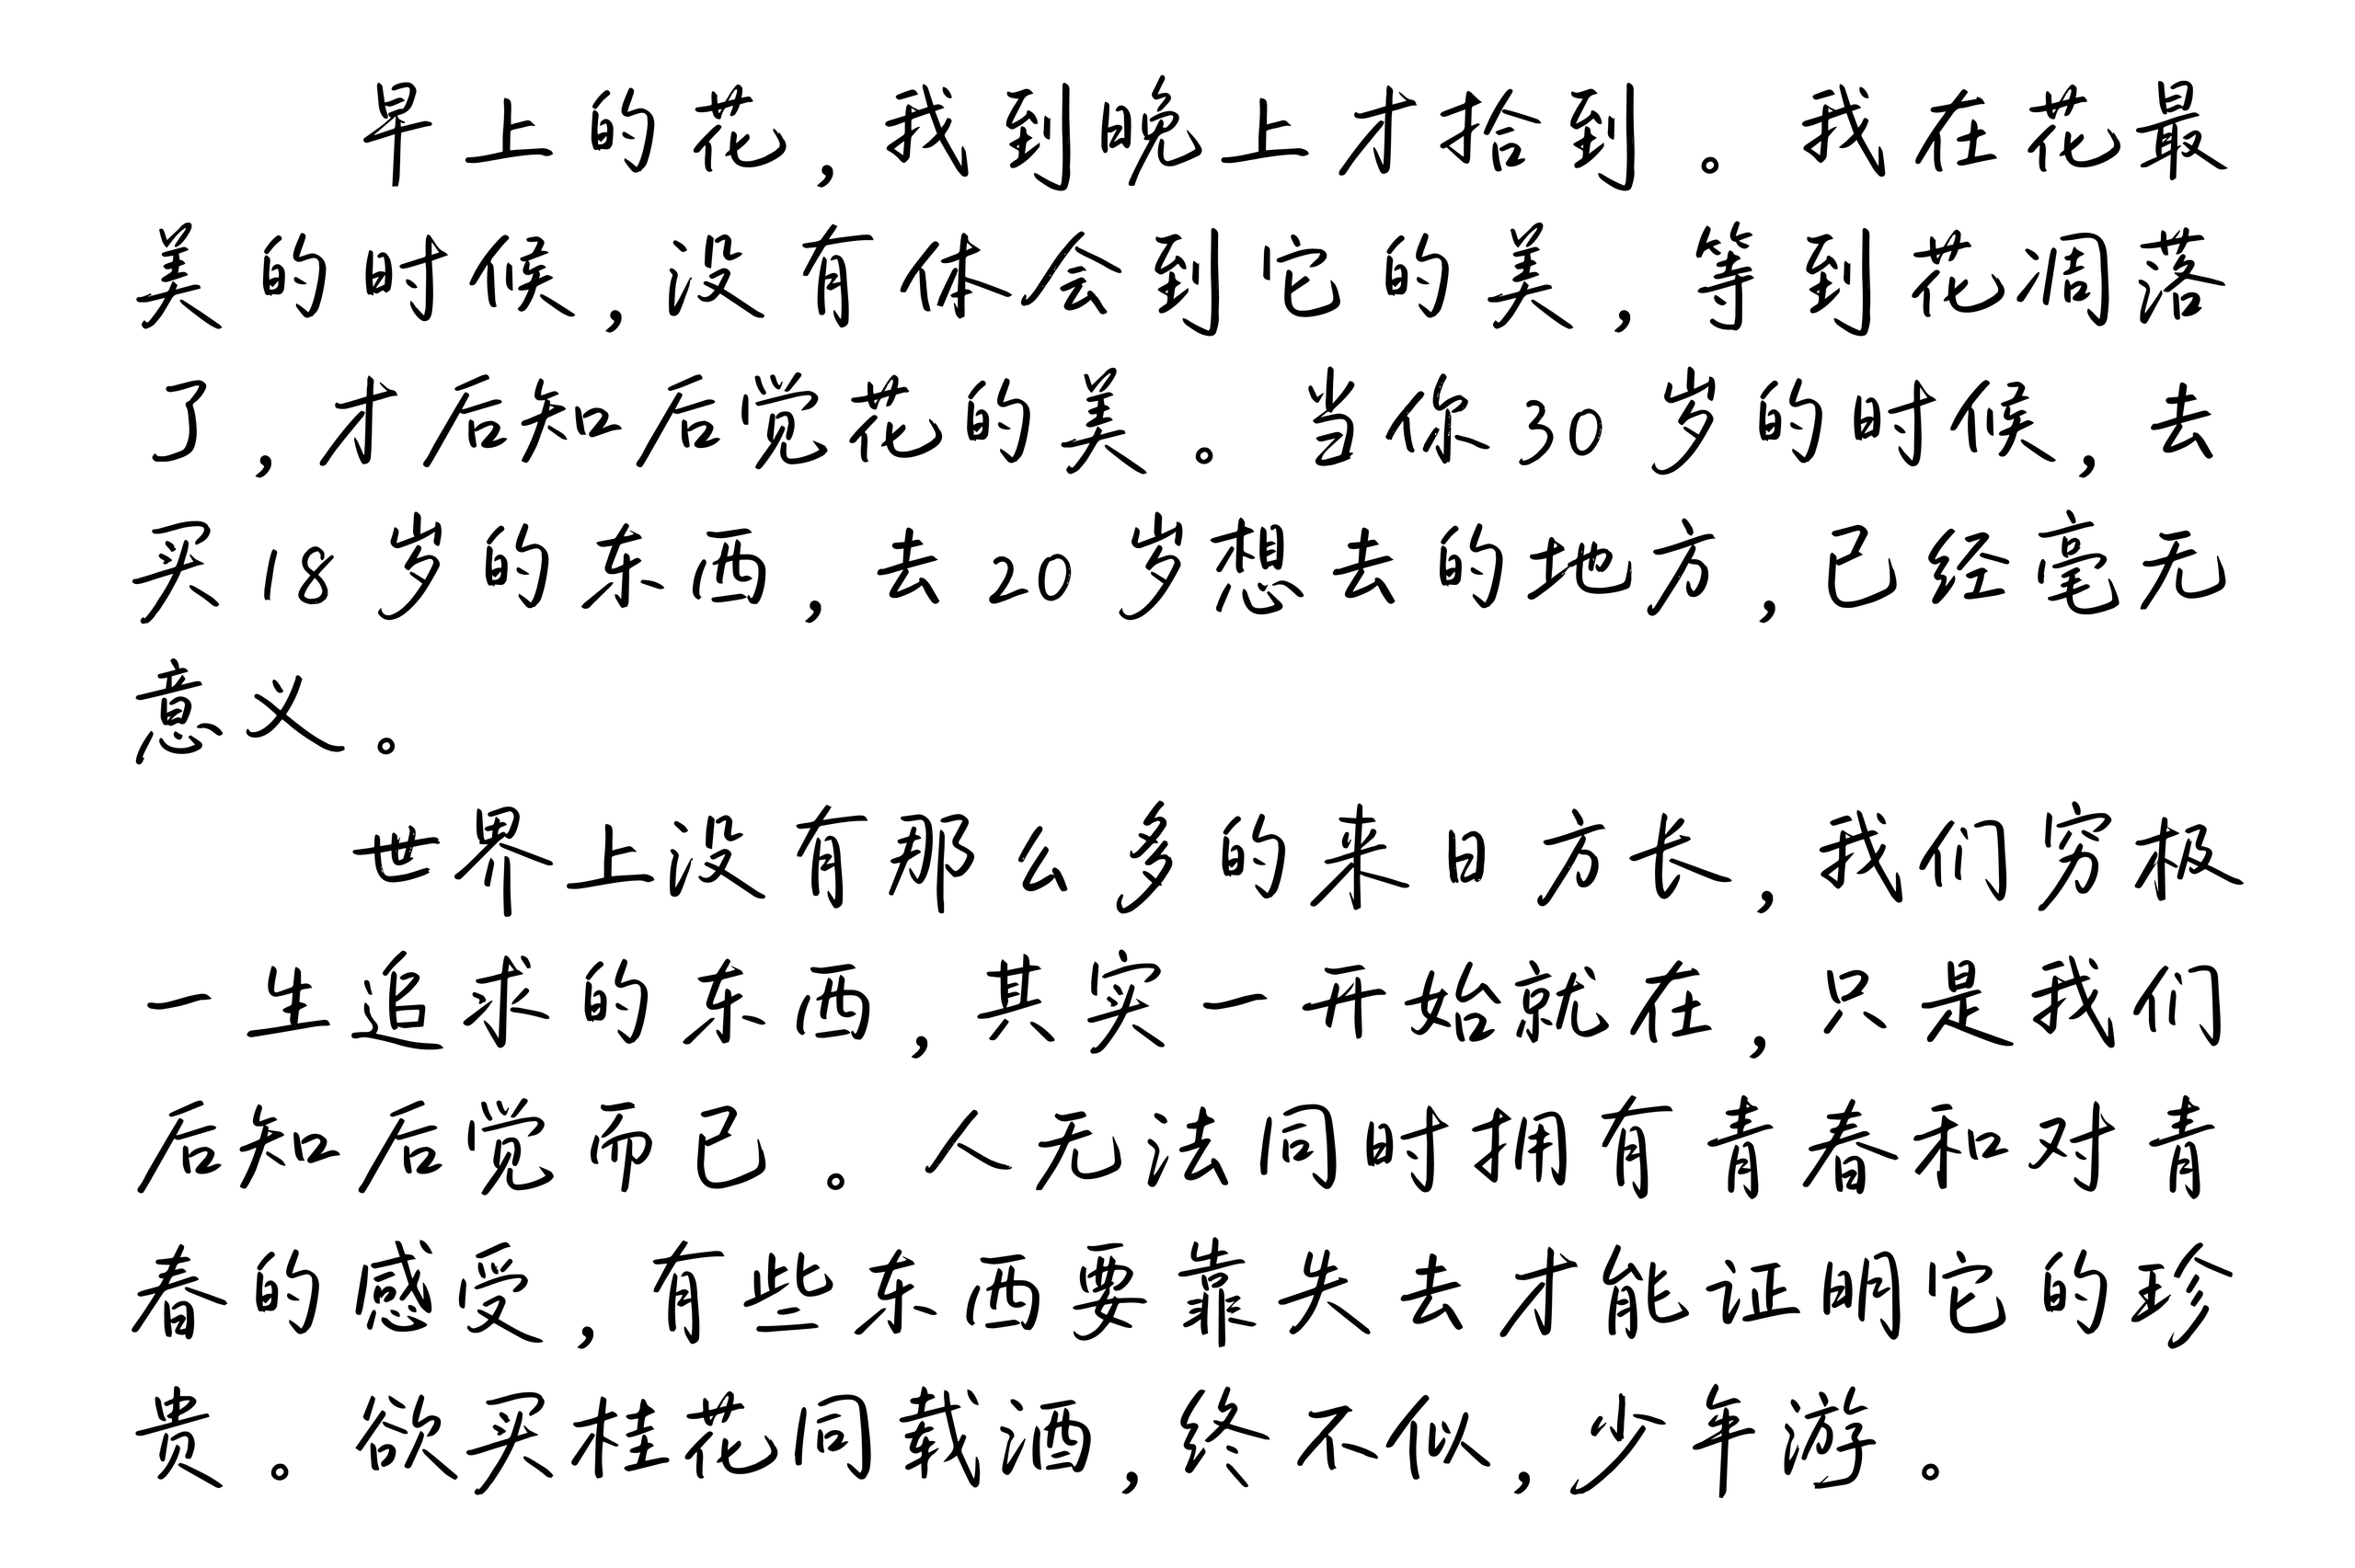 早上的花,我到晚上才拾到。我在花最
美的时候,没有体会到它的美,等到花凋落
了,才后知后觉花的美。当你30岁的时候,去
买18岁的东西,去20岁想去的地方,已经毫无
意义。
世界上没有那么多的来日方长,我们穷极
一生追求的东西,其实一开始就在,只是我们
后知后觉而已。人无法同时拥有青春和对青
春的感受,有些东西要靠失去才能证明它的珍
贵。欲买桂花同载酒,终不似,少年游。